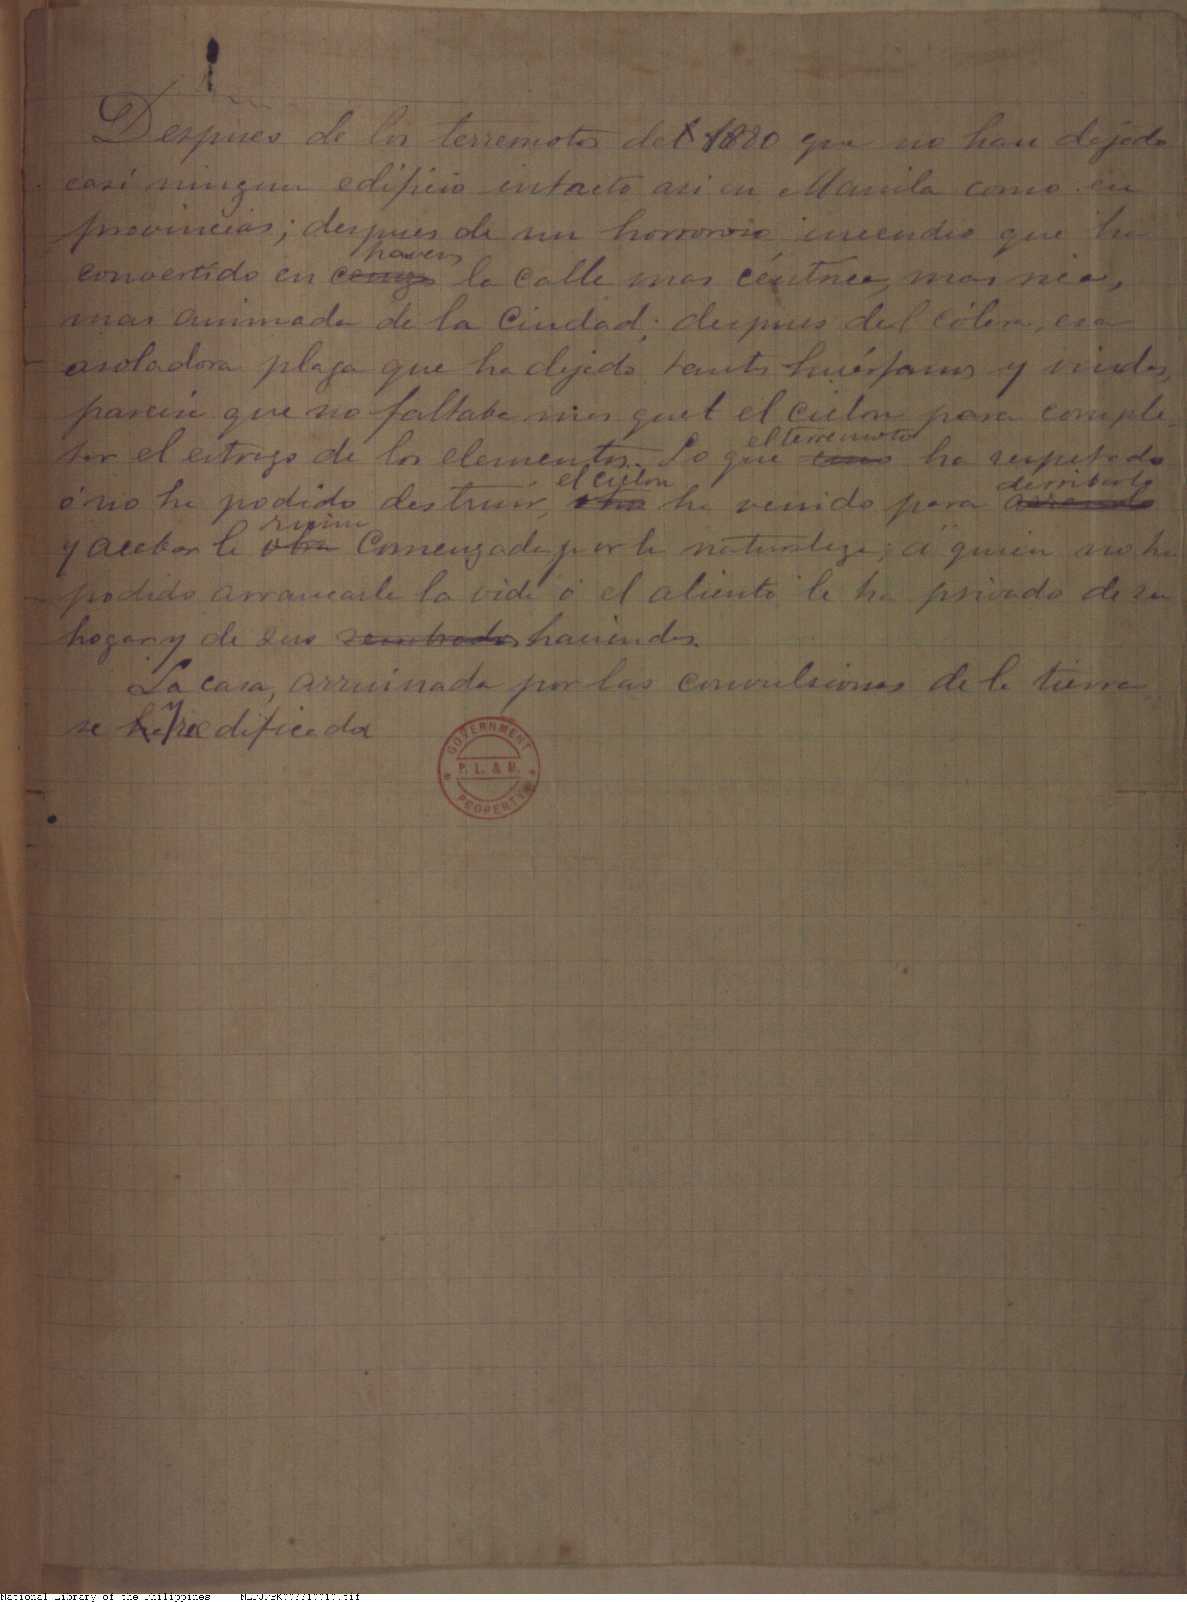 Despues de los terremotos de 1880 que no han dejado
casi ningun edificio intacto asi en Manila como en
provincias; despues de un horroroso incendio que ha
pavesas
convertido en la calle mas céntrica, mas rica,
mas animada de la Ciudad; despues del cólera, esa
asoladora plaga que ha dejado tantos huérfanos y viudas,
parecia que no faltaba mas que el ciclon para comple-
tar el estrago de los elementos. Lo que el terremoto ha respetado
ó no ha podido destruir, el ciclon ha venido para derribarlo
y acabar la ruina comenzada por la naturaleza; á quien no ha
podido arrancarle la vida ó el aliento le ha privado de su
hogar y de sus sembrados haciendas.
La casa, arruinada por las convulsiones de la tierra
se reedificada
GOVERNMENT
P. L. & M.
PROPERTY
National Library of the Philippines